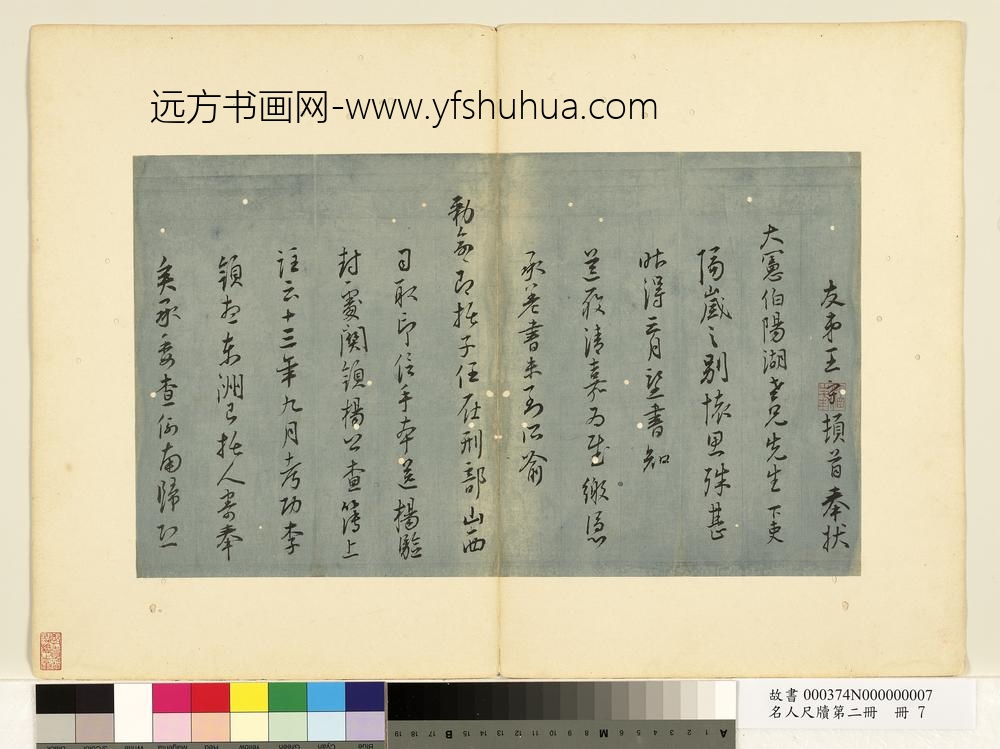 远方书画网-www.yfshuhua.com
友弟王守頓首奉状
大憲伯陽湖老兄先生下吏
隔歲之別懷思殊甚
昨得三月望書知
道履清嘉為慰繳憑
承差書未到所喻
勅命即托子任在刑部山西
司取印信手本送楊驗
封處関領楊公查簿上
註云十三年九月考功李
領想東洲已托人寄奉
矣承委查何南歸
故書 000374N000000007
名人尺牘第二冊 冊 7